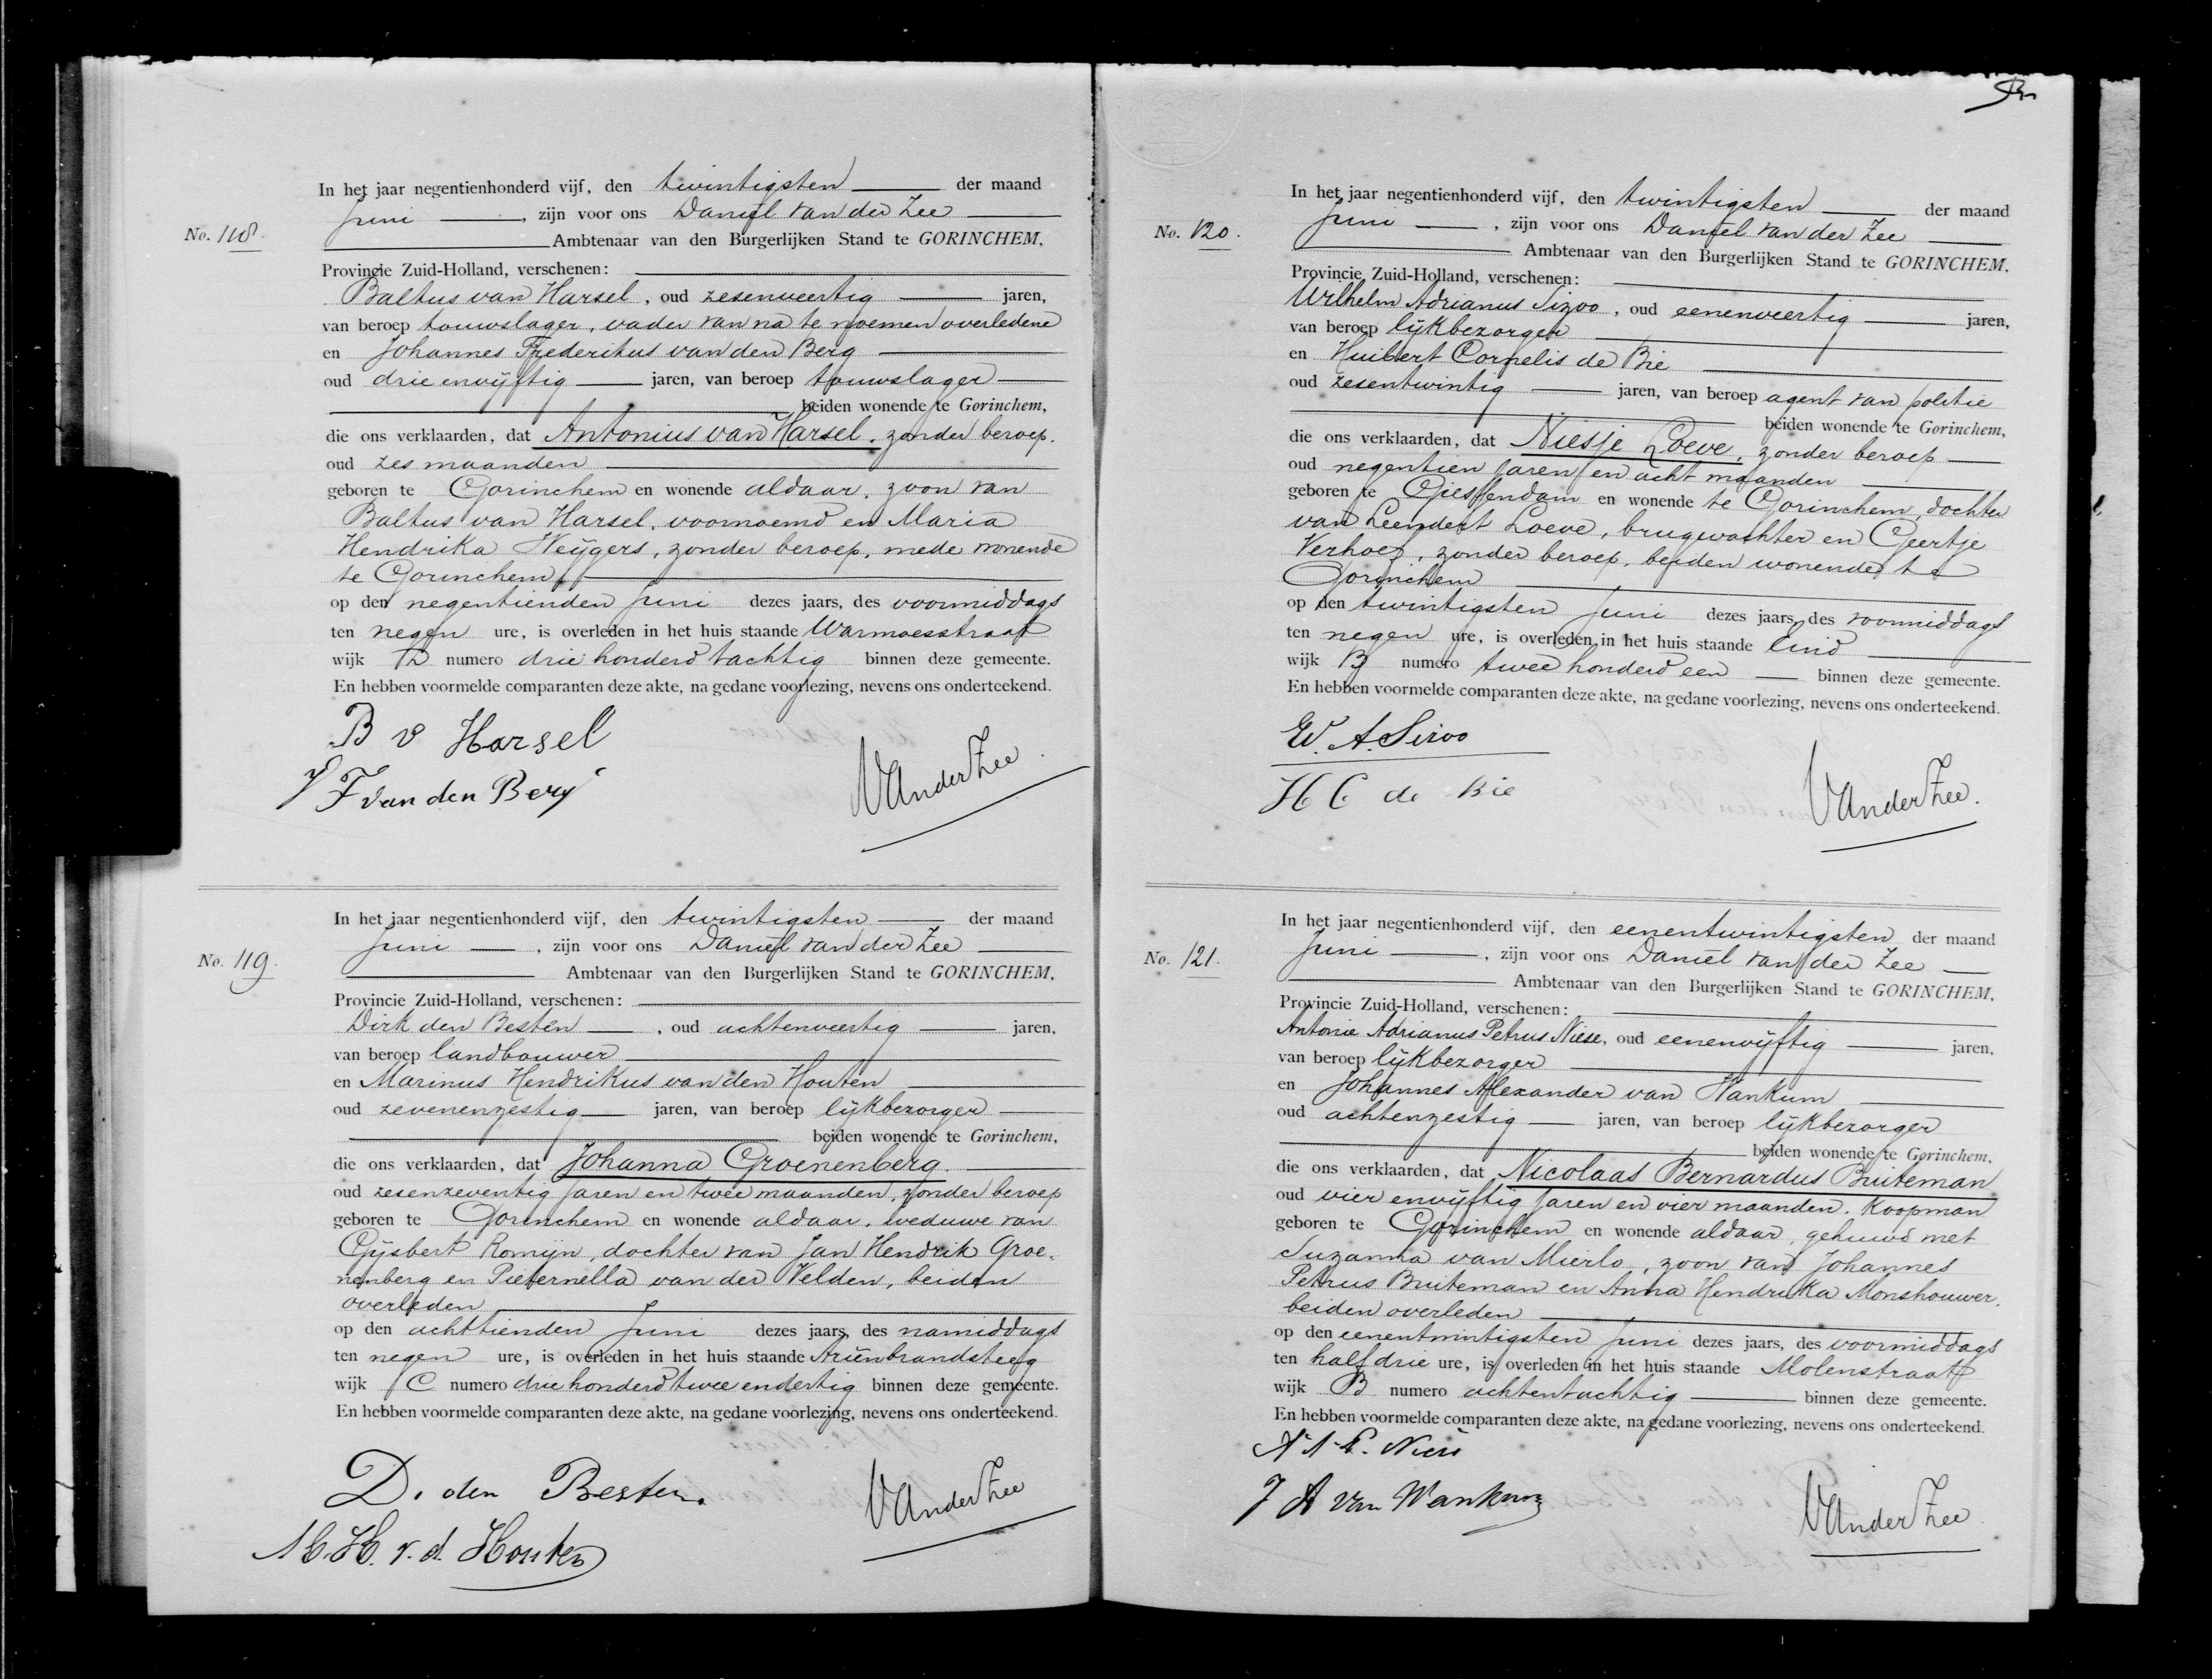 In het jaar negentienhonderd vijf, den twintigsten der maand
Juni, zijn voor ons Daniël van der Zee
No. 118.
Ambtenaar van den Burgerlijken Stand te GORINCHEM,
Provincie Zuid-Holland, verschenen:
Baltus van Harsel, oud zesenveertig jaren,
van beroep touwslager, vader van na te noemen overledene
en Johannes Frederikus van den Berg
oud drie envijftig jaren, van beroep touwslager
beiden wonende te Gorinchem,
die ons verklaarden, dat Antonius van Harsel, zonder beroep.
oud zes maanden
geboren te Gorinchem en wonende aldaar, zoon van
Baltus van Harsel, voornoemd en Maria
Hendrika Weijgers, zonder beroep, mede wonende
te Gorinchem
op den negentienden Juni dezes jaars, des voormiddags
ten negen ure, is overleden in het huis staande Warmoesstraat
wijk D numero drie honderd tachtig binnen deze gemeente.
En hebben voormelde comparanten deze akte, na gedane voorlezing, nevens ons onderteekend.
B v Harsel
J F van den Berg
VanderZee
In het jaar negentienhonderd vijf, den twintigsten der maand
Juni, zijn voor ons Daniël van der Zee
No. 119.
Ambtenaar van den Burgerlijken Stand te GORINCHEM,
Provincie Zuid-Holland, verschenen:
Dirk den Besten, oud achtenveertig jaren,
van beroep landbouwer
en Marinus Hendrikus van den Houten
oud zevenenzestig jaren, van beroep lijkbezorger
beiden wonende te Gorinchem,
die ons verklaarden, dat Johanna Groenenberg.
oud zesenzeventig jaren en twee maanden, zonder beroep
geboren te Gorinchem en wonende aldaar, weduwe van
Gijsbert Romijn, dochter van Jan Hendrik Groe-
nenberg en Pieternella van der Velden, beiden
overleden
op den achttienden Juni dezes jaars, des namiddags
ten negen ure, is overleden in het huis staande Ariënbrandsteeg
wijk C numero driehonderd twee endertig binnen deze gemeente.
En hebben voormelde comparanten deze akte, na gedane voorlezing, nevens ons onderteekend.
D. den Besten.
M.H. v.d. Houten
VanderZee
In het jaar negentienhonderd vijf, den twintigsten der maand
Juni, zijn voor ons Daniël van der Zee
No. 120.
Ambtenaar van den Burgerlijken Stand te GORINCHEM,
Provincie Zuid-Holland, verschenen:
Wilhelm Adrianus Sizoo, oud eenenveertig jaren,
van beroep lijkbezorger
en Huibert Cornelis de Bie
oud zesentwintig jaren, van beroep agent van politie
beiden wonende te Gorinchem,
die ons verklaarden, dat Niesje Loeve, zonder beroep
oud negentien jaren en acht maanden
geboren te Giessendam en wonende te Gorinchem, dochter
van Leendert Loeve, brugwachter en Geertje
Verhoef, zonder beroep, beiden wonende te
Gorinchem
op den twintigsten Juni dezes jaars, des voormiddags
ten negen ure, is overleden in het huis staande Eind
wijk B numero twee honderd een binnen deze gemeente.
En hebben voormelde comparanten deze akte, na gedane voorlezing, nevens ons onderteekend.
W. A. Sizoo
H C de Bie
VanderZee.
In het jaar negentienhonderd vijf, den eenentwintigsten der maand
Juni, zijn voor ons Daniël van der Zee
No. 121.
Ambtenaar van den Burgerlijken Stand te GORINCHEM,
Provincie Zuid-Holland, verschenen:
Antonie Adrianus Petrus Niese, oud eenenvijftig jaren,
van beroep lijkbezorger
en Johannes Alexander van Wankum
oud achtenzestig jaren, van beroep lijkbezorger
beiden wonende te Gorinchem,
die ons verklaarden, dat Nicolaas Bernardus Buiteman
oud vier envijftig jaren en vier maanden. Koopman
geboren te Gorinchem en wonende aldaar, gehuwd met
Suzanna van Mierlo, zoon van Johannes
Petrus Buiteman en Anna Hendrika Monshouwer,
beiden overleden
op den eenentwintigsten Juni dezes jaars, des voormiddags
ten half drie ure, is overleden in het huis staande Molenstraat
wijk B numero achtentachtig binnen deze gemeente.
En hebben voormelde comparanten deze akte, na gedane voorlezing, nevens ons onderteekend.
A. A. P. Niese
J A van Wankum
VanderZee.